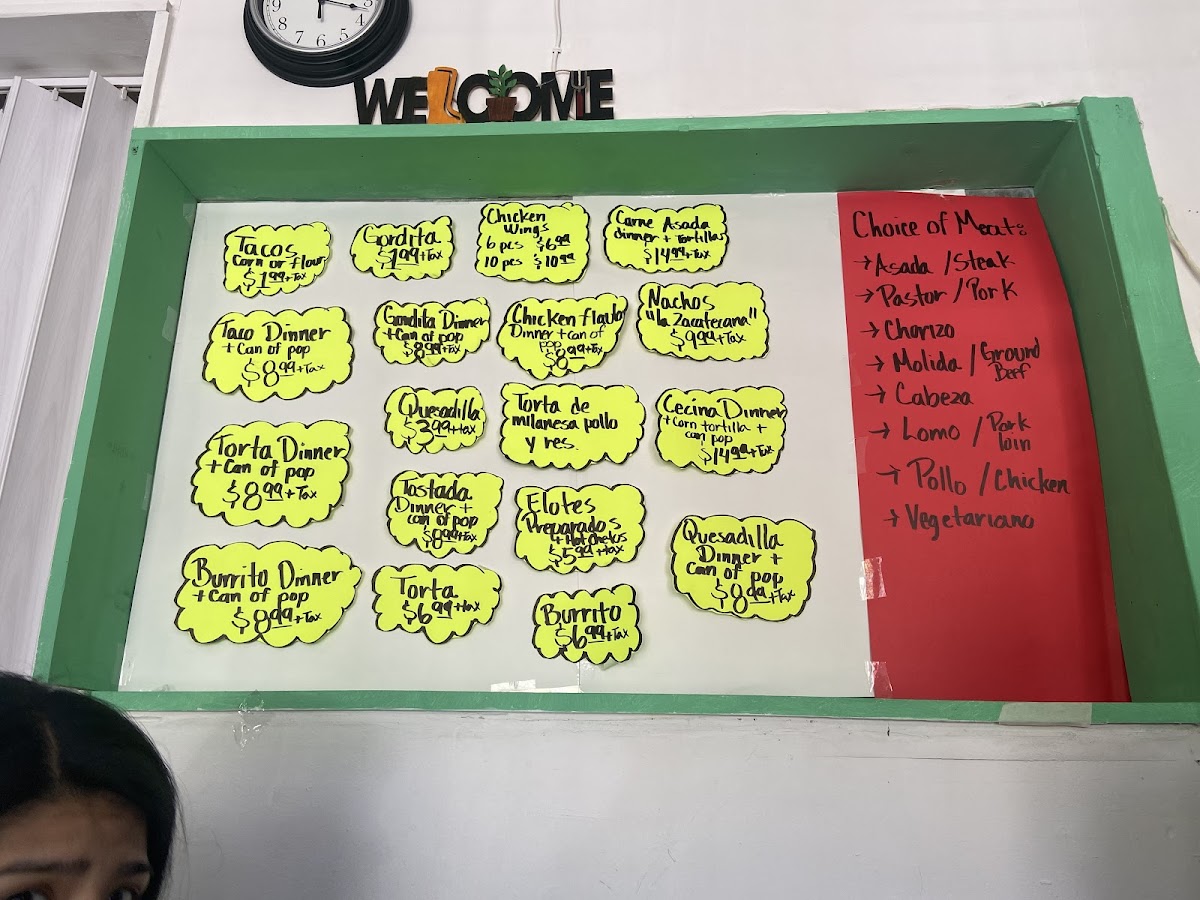 9
8
7
6
5
4
3
WELCOME
Tacos
Corn or flour
$1.99+Tax
Gordita
$1.99+Tax
Chicken
Wings
6 pcs $6.99
10 pcs $10.99
Carne Asada
dinner + Tortillas
$14.99+Tax
Taco Dinner
+ Can of pop
$8.99+Tax
Gordita Dinner
+ Can of pop
$8.99+Tax
Chicken flauta
Dinner + can of
pop
$8.99+Tax
Nachos
"la Zacatecana"
$9.99+Tax
Quesadilla
$3.99+tax
Torta de
milanesa pollo
y res.
Cecina Dinner
+ corn tortilla +
can pop
$14.99+Tax
Torta Dinner
+ Can of pop
$8.99+Tax
Tostada
Dinner +
can of pop
$8.99+Tax
Elotes
Preparados
+ Hot chetos
$5.99+tax
Quesadilla
Dinner +
Can of pop
$8.99+Tax
Burrito Dinner
+ Can of pop
$8.99+Tax
Torta
$6.99+tax
Burrito
$6.99+Tax
Choice of Meat:
→Asada / Steak
→Pastor / Pork
→ Chorizo
→ Molida / Ground
Beef
→ Cabeza
→ Lomo / Pork
loin
→ Pollo / Chicken
→ Vegetariano